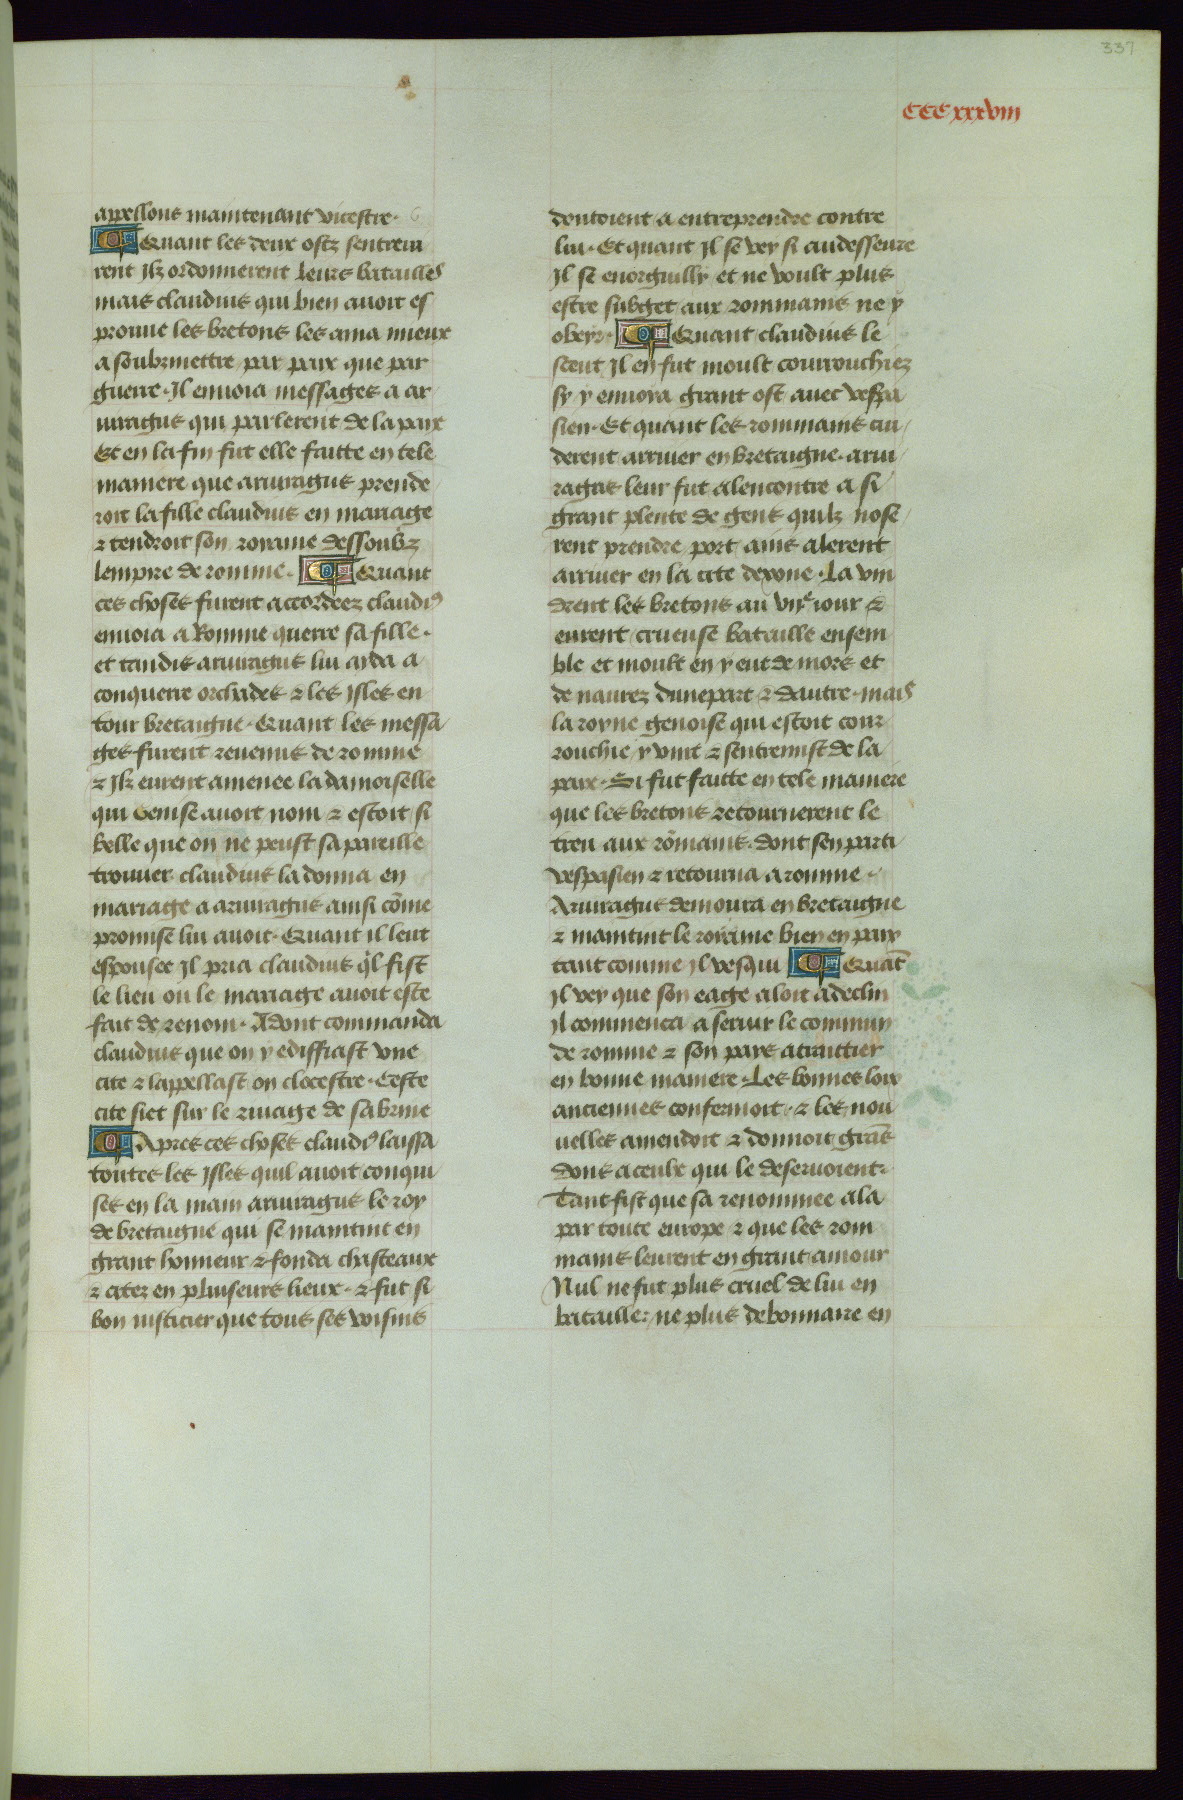 337
CCCxxxviii
apellons maintenant vicestre.
Quant les deux ostz sentreui
rent Ilz ordonnerent leurs batailles
mais claudius qui bien auoit es
prouue les bretons les ama mieux
a soubzmettre par paix que par
guerre. Il enuoia messages a ar
uiragus qui parlerent de la paix
Et en la fin fut elle faitte en tele
maniere que aruiragus prende
roit la fille claudius en mariage
⁊ tendroit son roiaume dessoubz
lempire de romme. Quant
ces choses furent accordeez claudi⁹
enuoia a Romme querre sa fille.
et tandis aruiragus lui ayda a
conquerre orchades ⁊ les Isles en
tour bretaigne. Quant les messa
ges furent reuenus de romme
⁊ Ilz eurent amenee la damoiselle
qui Genise auoit nom ⁊ estoit si
belle que on ne peust sa pareille
trouuer claudius la donna en
mariage a aruiragus ainsi cōme
promise lui auoit. Quant il leut
espousee Il pria claudius q̄l fist
le lieu ou le mariage auoit este
fait de renom. Adont commanda
claudius que on y ediffiast vne
cite ⁊ lappellast on clocestre. Ceste
cite siet sur le riuage de sabrine
Apres ces choses claudi⁹ laissa
toutes les Isles quil auoit conqui
ses en la main aruiragus le roy
de bretaigne qui se maintint en
grant honneur ⁊ fonda chasteaux
⁊ citez en pluiseurs lieux. ⁊ fut si
bon iusticier que tous ses voisins
doutoient a entreprendre contre
lui. Et quant Il se vey si audesseure
Il se enorguilly et ne voult plus
estre subget aux rommains ne y
obeyr. Quant claudius le
sceut Il en fut moult courrouchiez
sy y enuoya grant ost auec vespa
sien. Et quant les rommains cui
derent arriuer en bretaigne. arui
ragus leur fut alencontre a si
grant plente de gens quilz nose
rent prendre port ains alerent
arriuer en la cite dexone. La vin
drent les bretons au viie iour ⁊
eurent crueuse bataille ensem
ble et moult en y eut de mors et
de naurez dunepart ⁊ dautre. mais
la royne genoise qui estoit cour
rouchie y vint ⁊ sentremist de la
paix. Si fut faitte en tele maniere
que les bretons retournerent le
treu aux rōmains. dont sen parti
vespasien ⁊ retourna a romme.
Aruiragus demoura en bretaigne
⁊ maintint le roiaume bien en paix
tant comme Il vesqui Quāt
Il vey que son eage aloit a declin
Il commenca a seruir le commun
de romme ⁊ son pays a traittier
en bonne maniere. Les bonnes loix
anciennes confermoit. ⁊ les nou
uelles amendoit ⁊ donnoit grās
dons a ceulx qui le deseruoient.
Tant fist que sa renommee ala
par toute europe ⁊ que les rom
mains leurent en grant amour
Nul ne fut plus cruel de lui en
bataille: ne plus debonnaire en